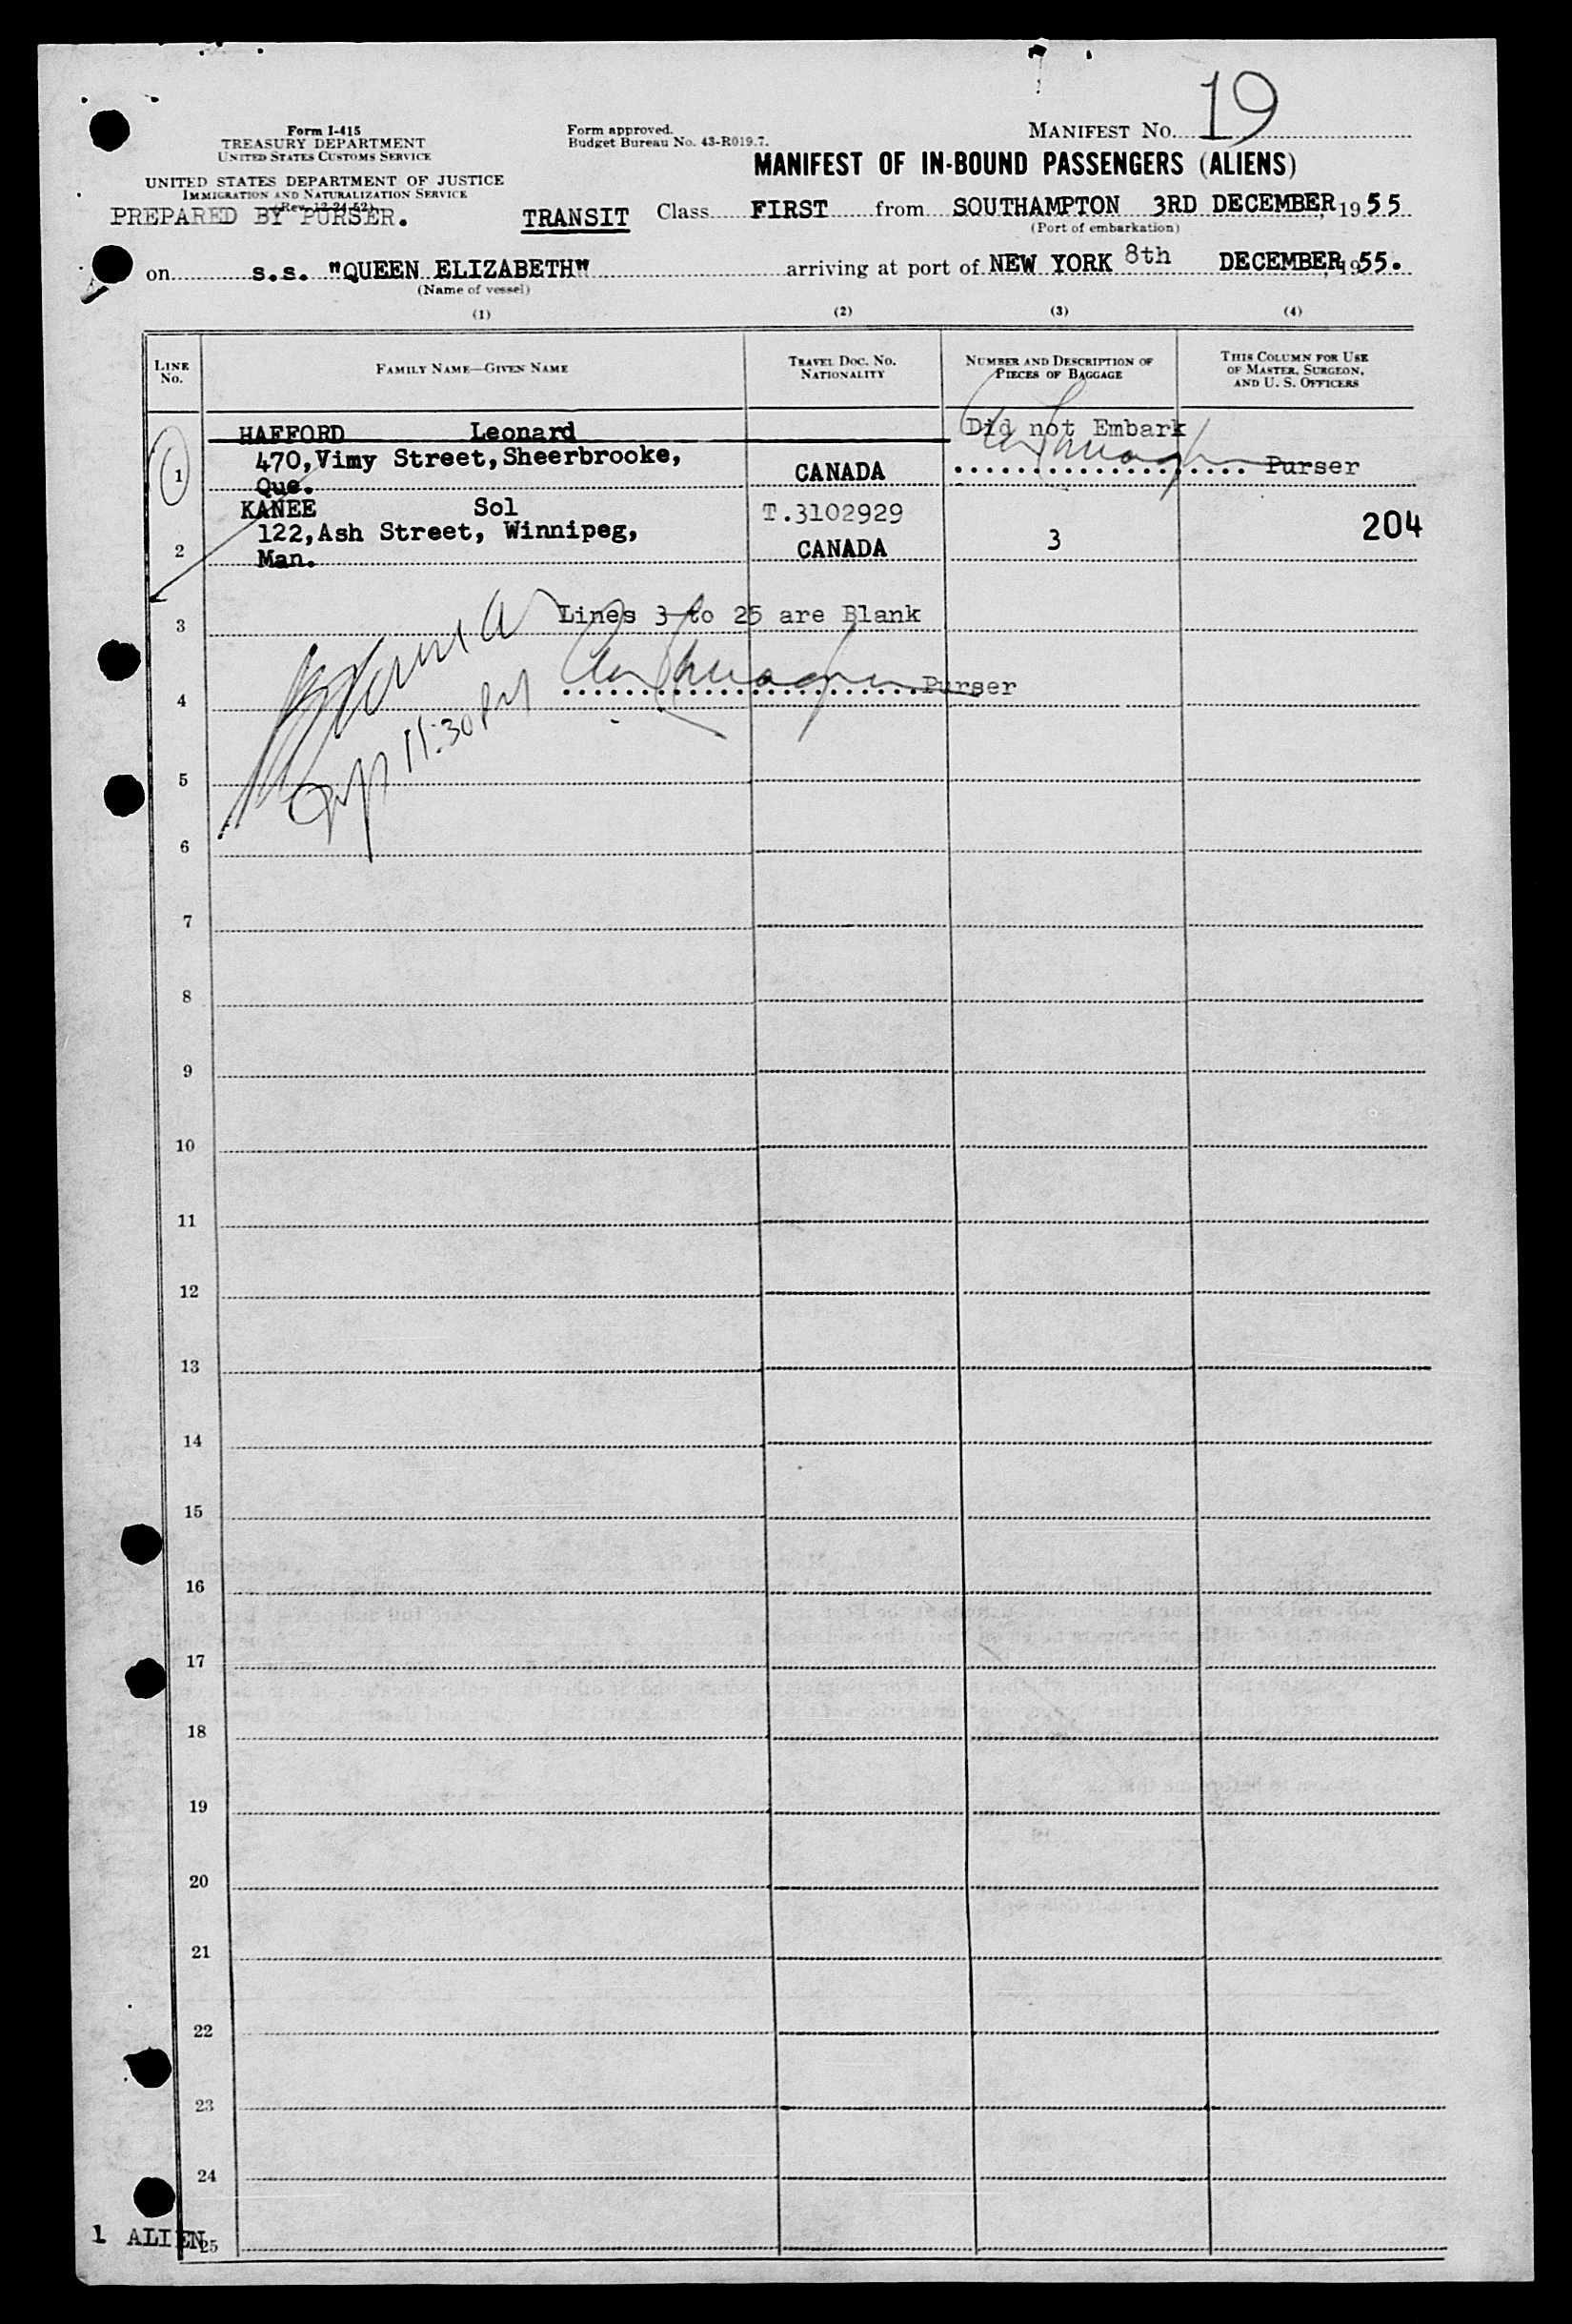 MANIFEST No. 19
Form I-415
TREASURY DEPARTMENT
UNITED STATES CUSTOMS SERVICE
Form approved.
Budget Bureau No. 43-R019.7.
MANIFEST OF IN-BOUND PASSENGERS (ALIENS)
UNITED STATES DEPARTMENT OF JUSTICE
IMMIGRATION AND NATURALIZATION SERVICE
(Rev. 12-24-52)
PREPARED BY PURSER. TRANSIT Class FIRST from SOUTHAMPTON 3RD DECEMBER, 1955
(Port of embarkation)
on s.s. "QUEEN ELIZABETH" arriving at port of NEW YORK 8th DECEMBER, 1955.
(Name of vessel)
(1) (2) (3) (4)
LINE No. FAMILY NAME—GIVEN NAME TRAVEL DOC. No. NATIONALITY NUMBER AND DESCRIPTION OF PIECES OF BAGGAGE THIS COLUMN FOR USE OF MASTER, SURGEON, AND U. S. OFFICERS
HAFFORD Leonard Did not Embark
1 470,Vimy Street,Sheerbrooke, CANADA Purser
Que.
KANEE Sol T.3102929 204
2 122,Ash Street, Winnipeg, CANADA 3
Man.
3 Lines 3 to 25 are Blank
4 Purser
11:30 PM
5
6
7
8
9
10
11
12
13
14
15
16
17
18
19
20
21
22
23
24
1 ALIEN 25